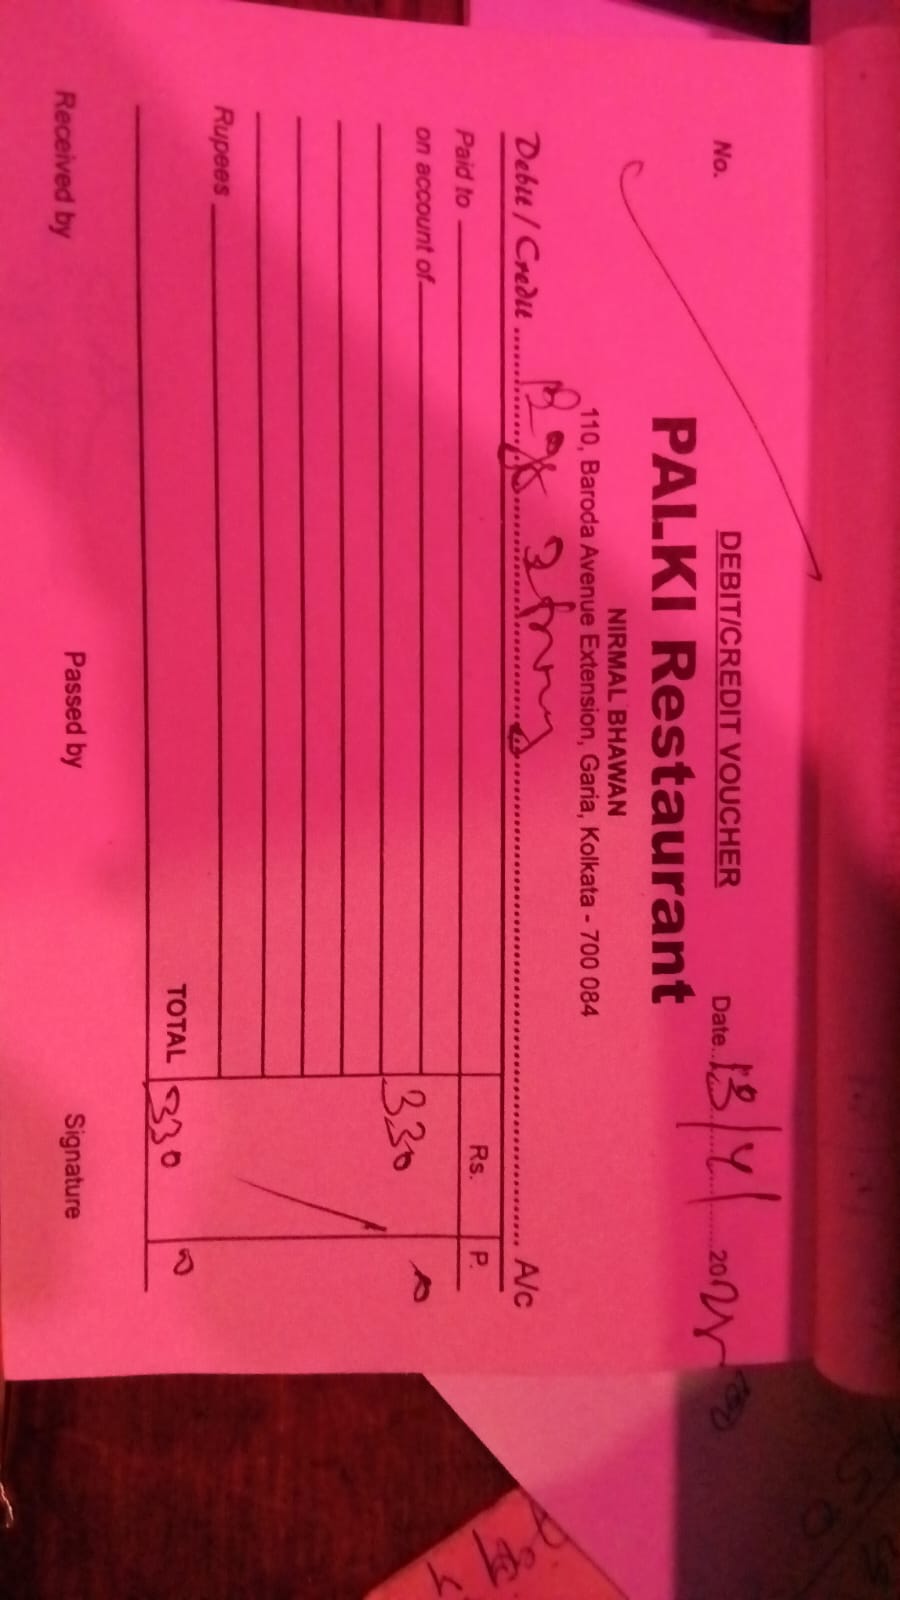 DEBIT/CREDIT VOUCHER
No. Date.. 20
PALKI Restaurant
NIRMAL BHAWAN
110, Baroda Avenue Extension, Garia, Kolkata - 700 084
Debit / Credit A/c
Paid to Rs. P.
on account of
330
Rupees
TOTAL 330 0
Received by Passed by Signature